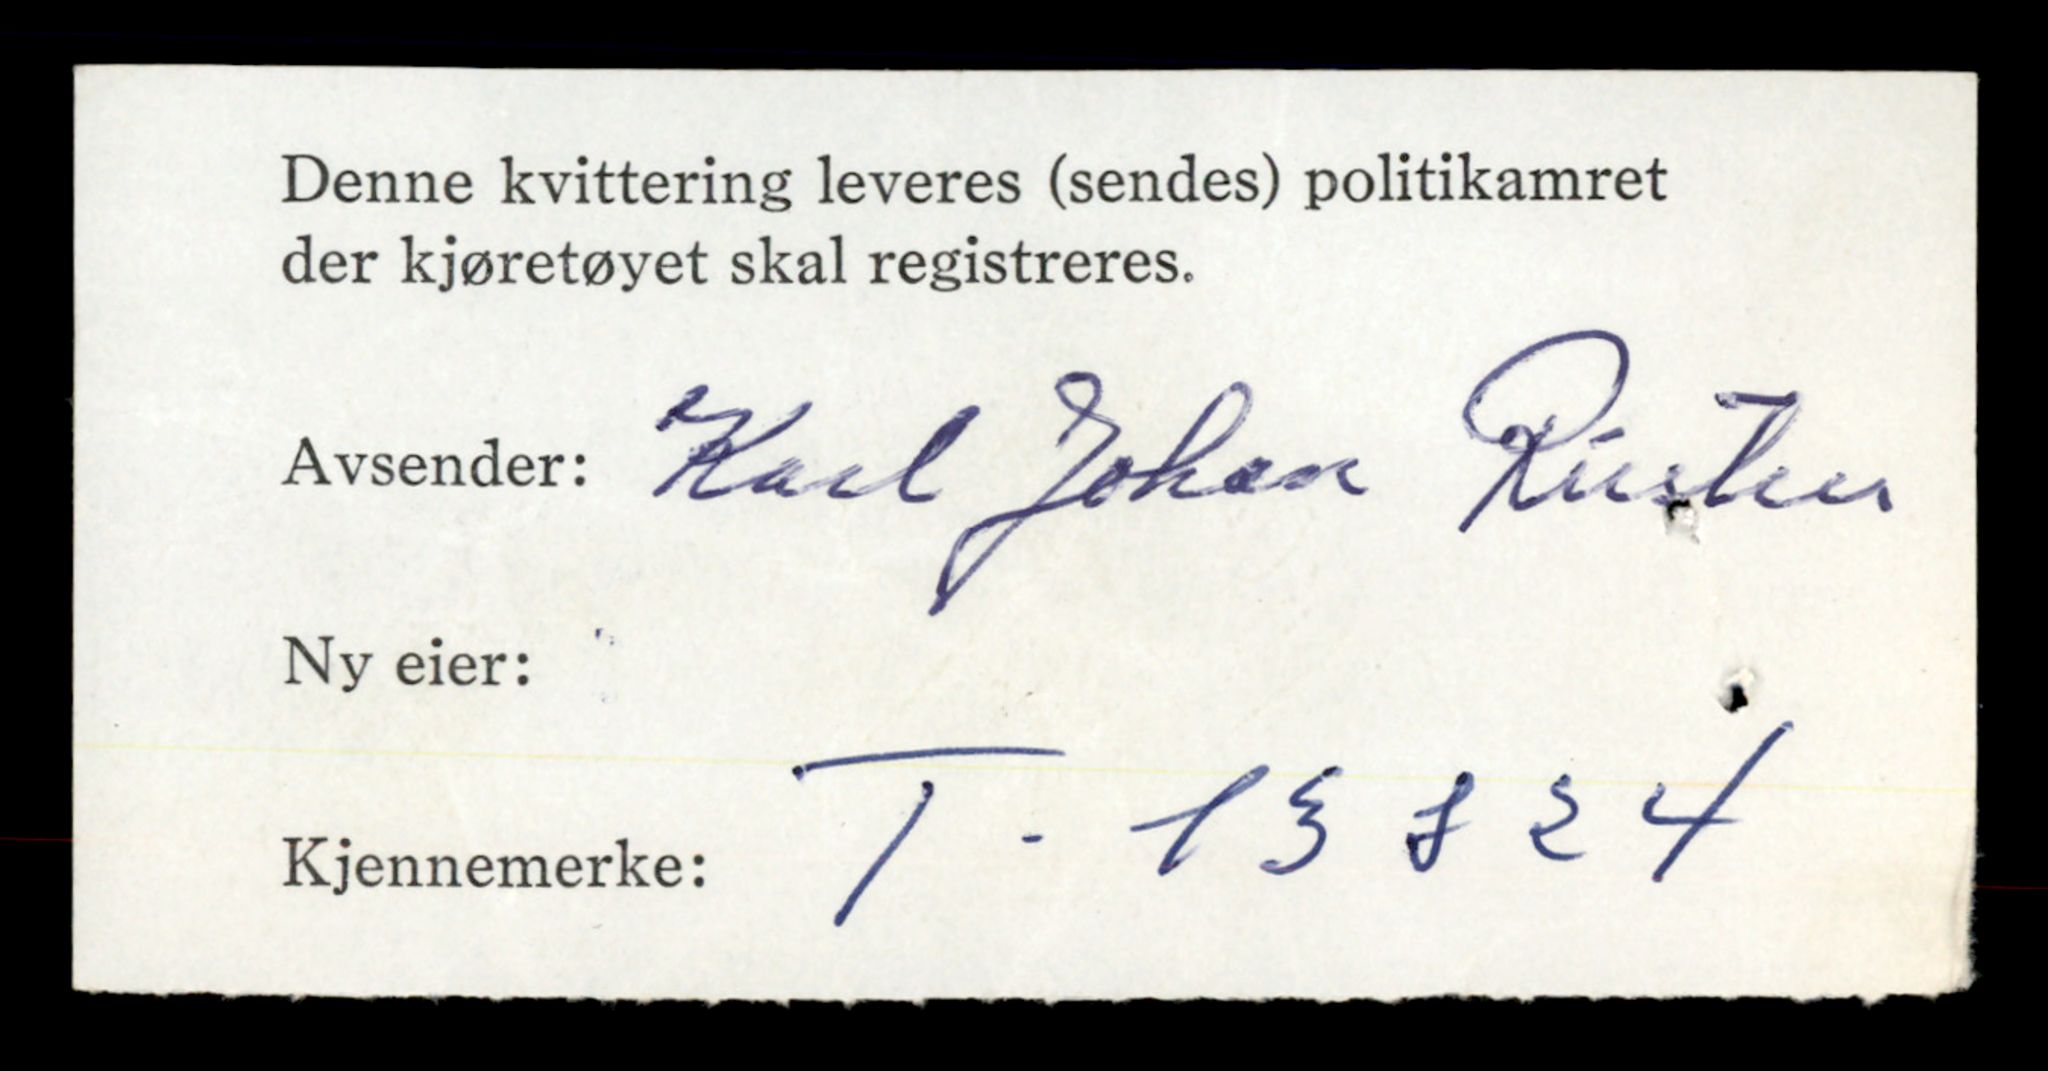 Denne kvittering leveres (sendes) politikamret
der kjøretøyet skal registreres.
Avsender: Karl Johan
Ny eier:
Kjennemerke: T - 13824